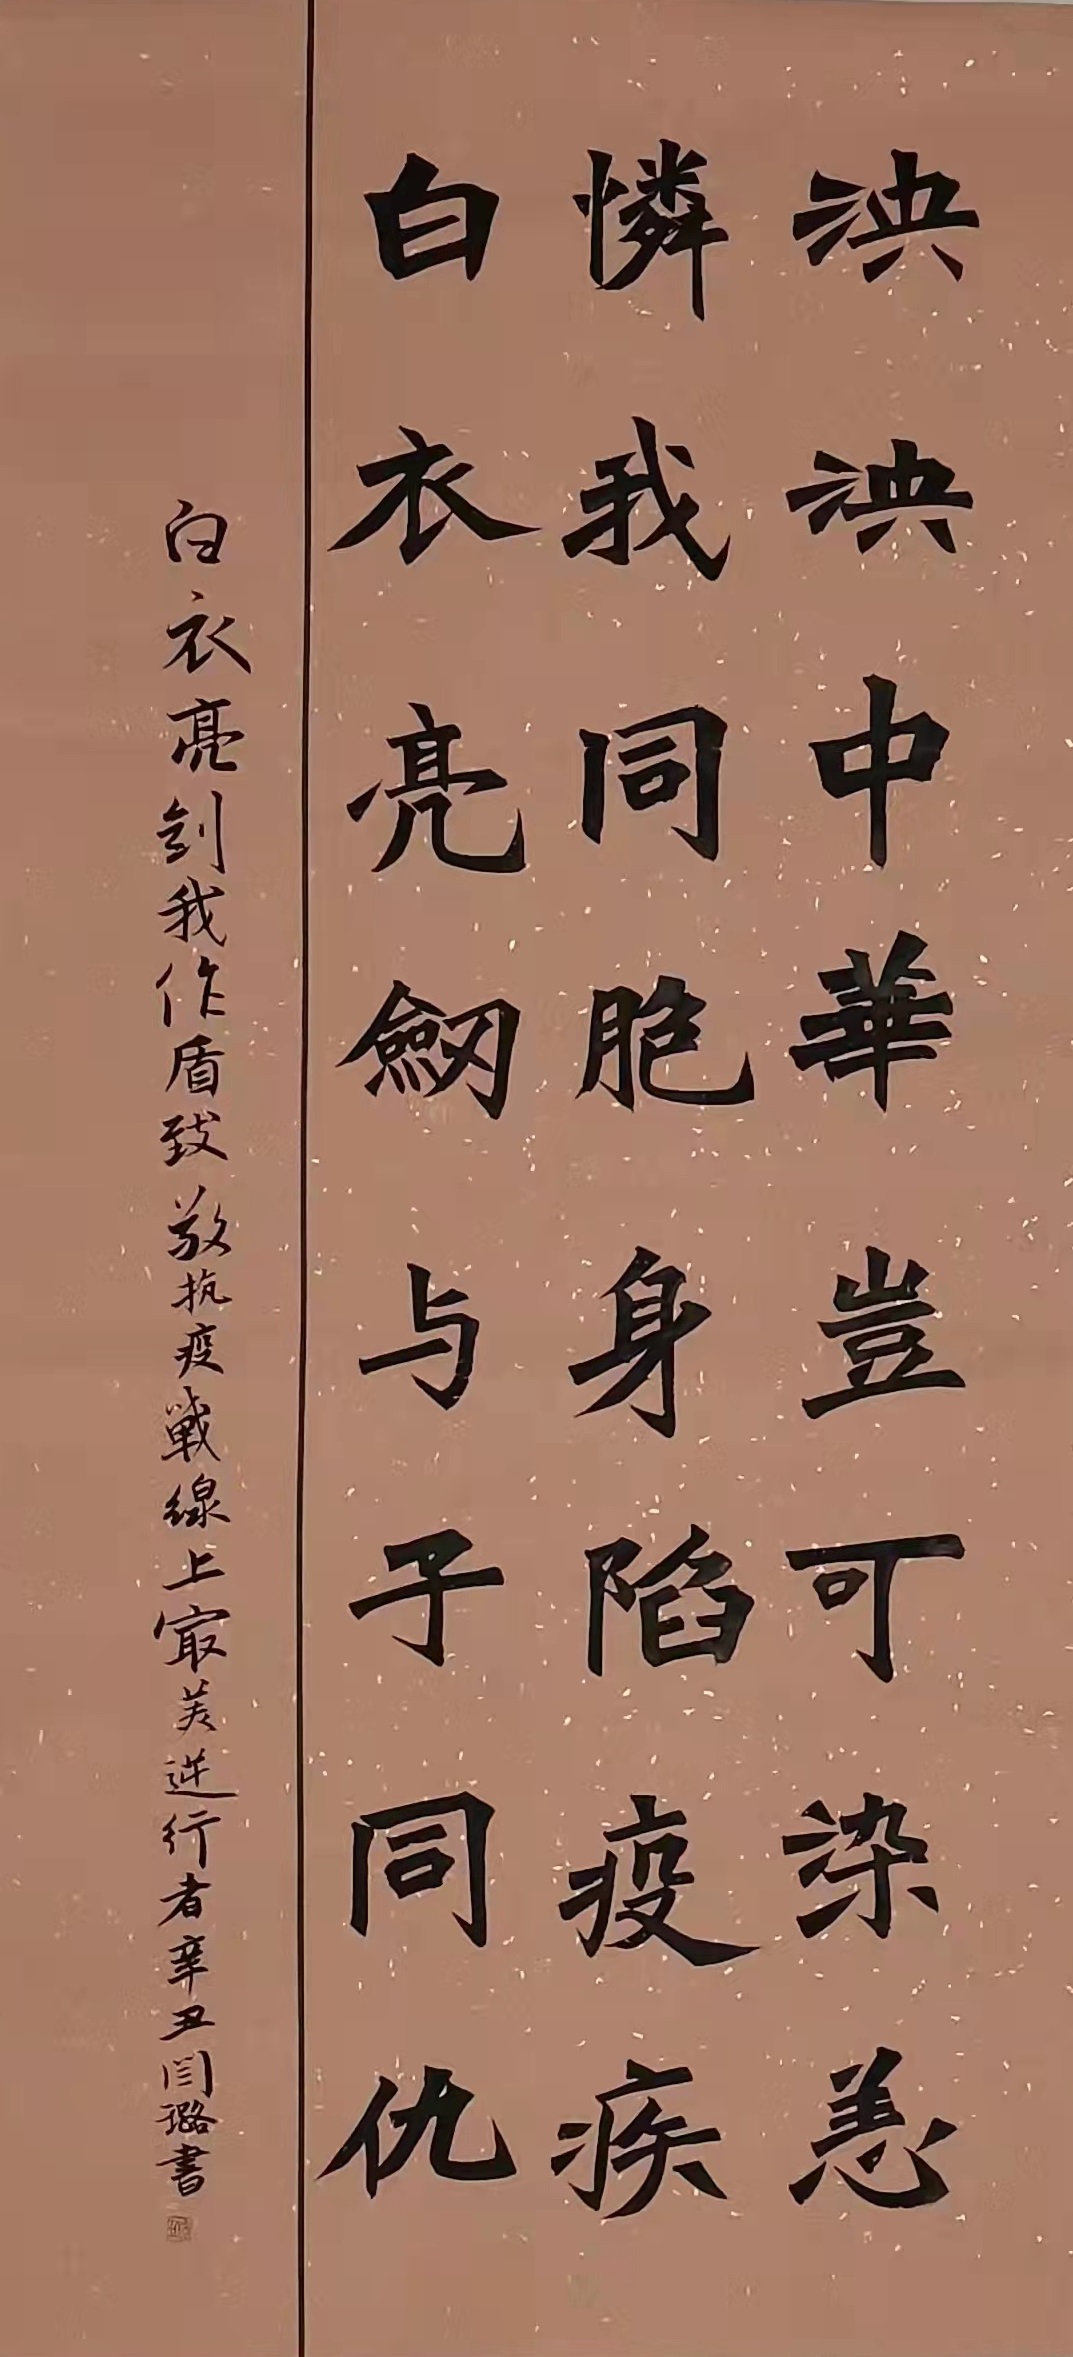 泱泱中華豈可染恙
憐我同胞身陷疫疾
白衣亮劒与子同仇
白衣亮剑我作盾致敬执疫戰線上最美逆行者辛丑闫璐書